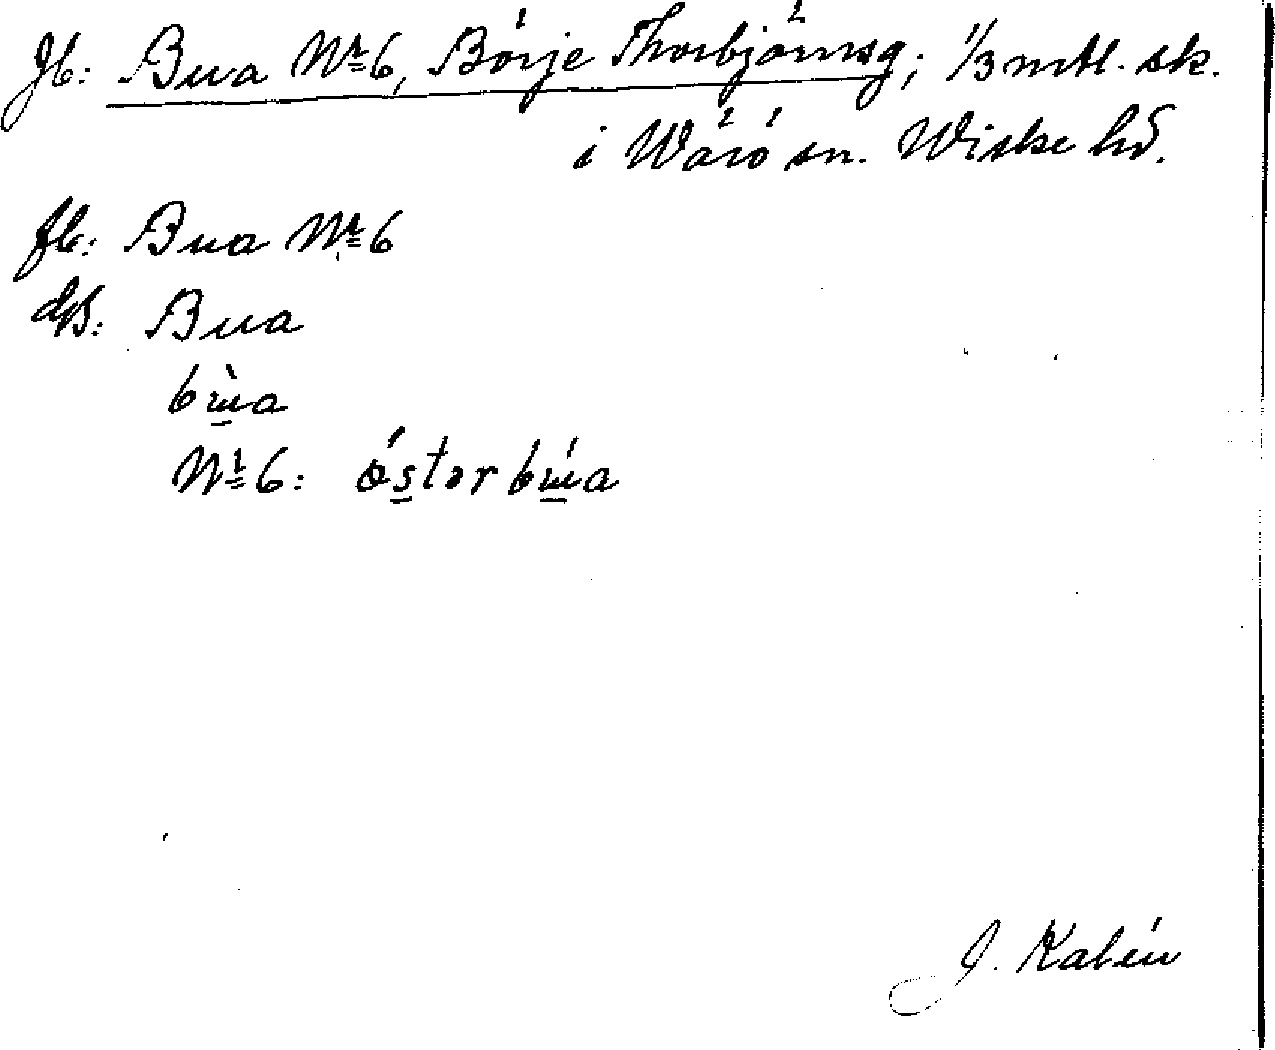 Jb: Bua Nr 6, Börje Thorbjörnsg; 1/3 mtl. sk.
i Wärö sn. Wiske hd.
fb: Bua Nr 6
Bua
bùa
Nr 6: östərbúa
J. Kalén